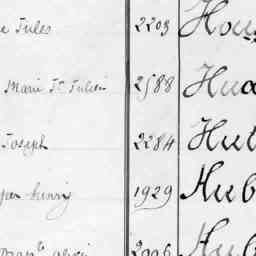 e Jules 2203 Hou
Marie St Julien 2588 Hua
Joseph 2284 Hub
Henry 1929 Hub
2996 Hub